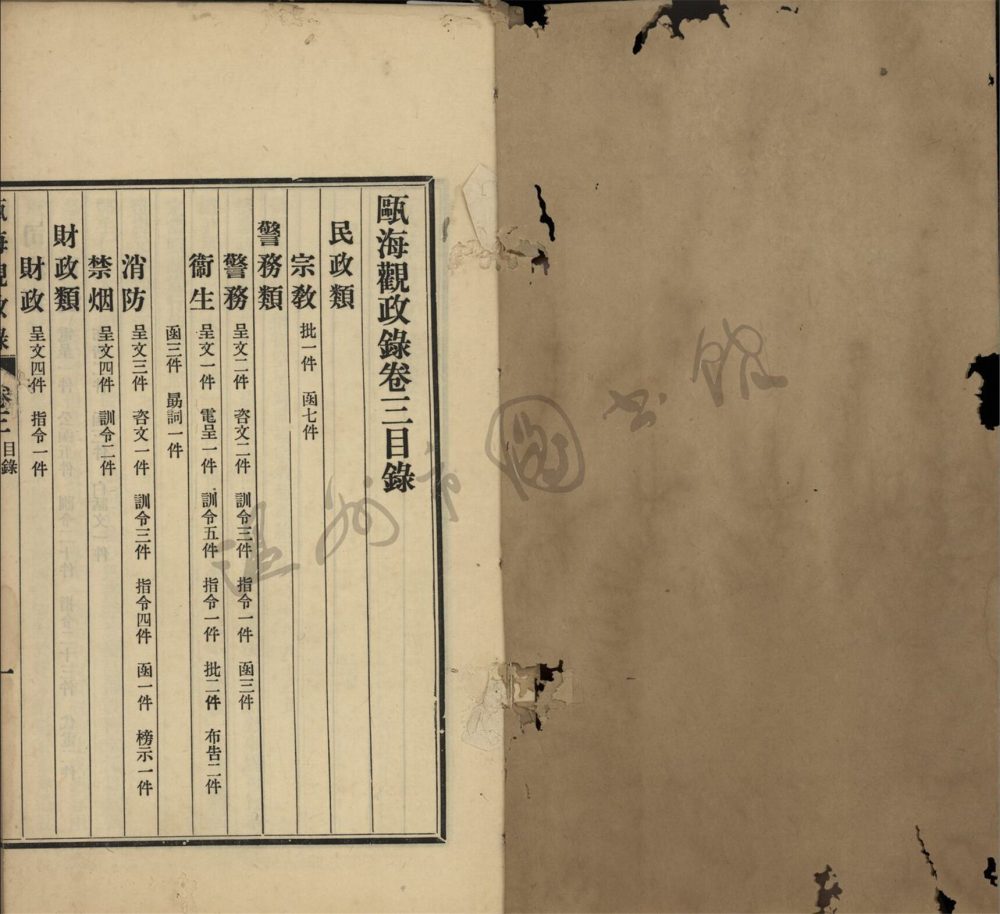 甌海觀政錄卷三目錄
民政類
宗教 批一件 函七件
警務類
警務 呈文二件 咨文二件 訓令三件 指令一件 函三件
衞生 呈文一件 電呈一件 訓令五件 指令一件 批二件 布告二件
函三件 勗詞一件
消防 呈文三件 咨文一件 訓令三件 指令四件 函一件 榜示一件
禁烟 呈文四件 訓令二件
財政類
財政 呈文四件 指令一件
甌海觀政錄 卷三 目錄 一
溫州市圖书館